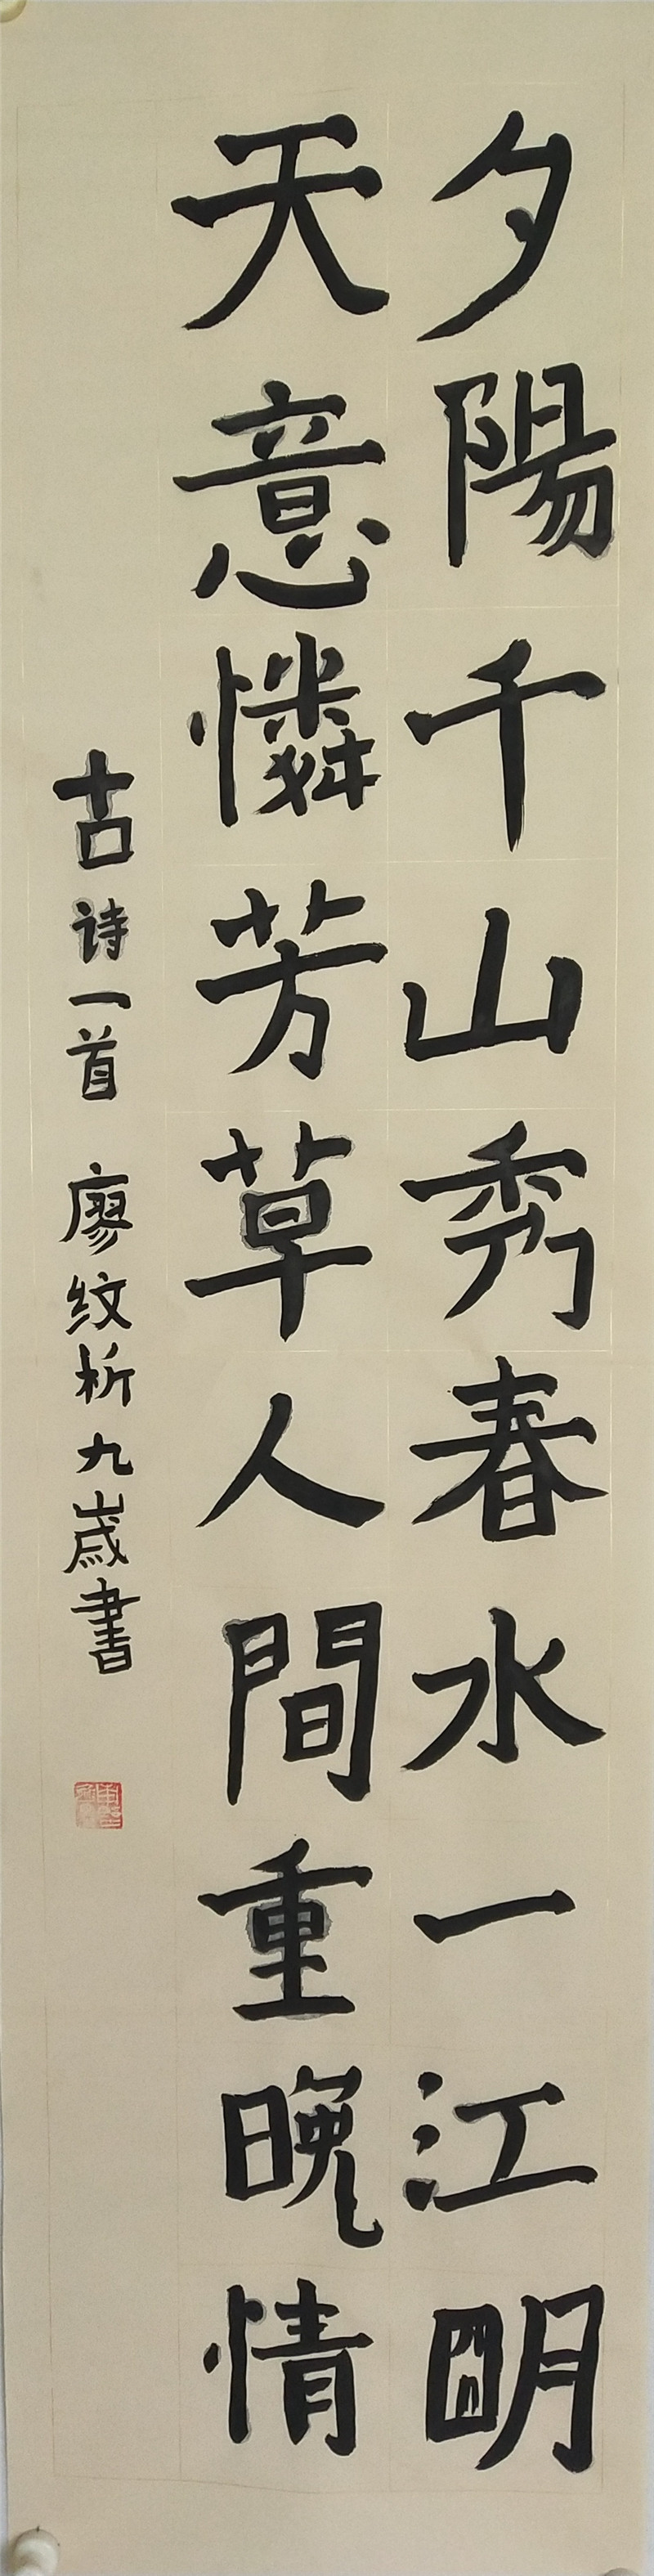 夕陽千山秀春水一江明
天意憐芳草人間重晚情
古诗一首 廖纹析九歲書